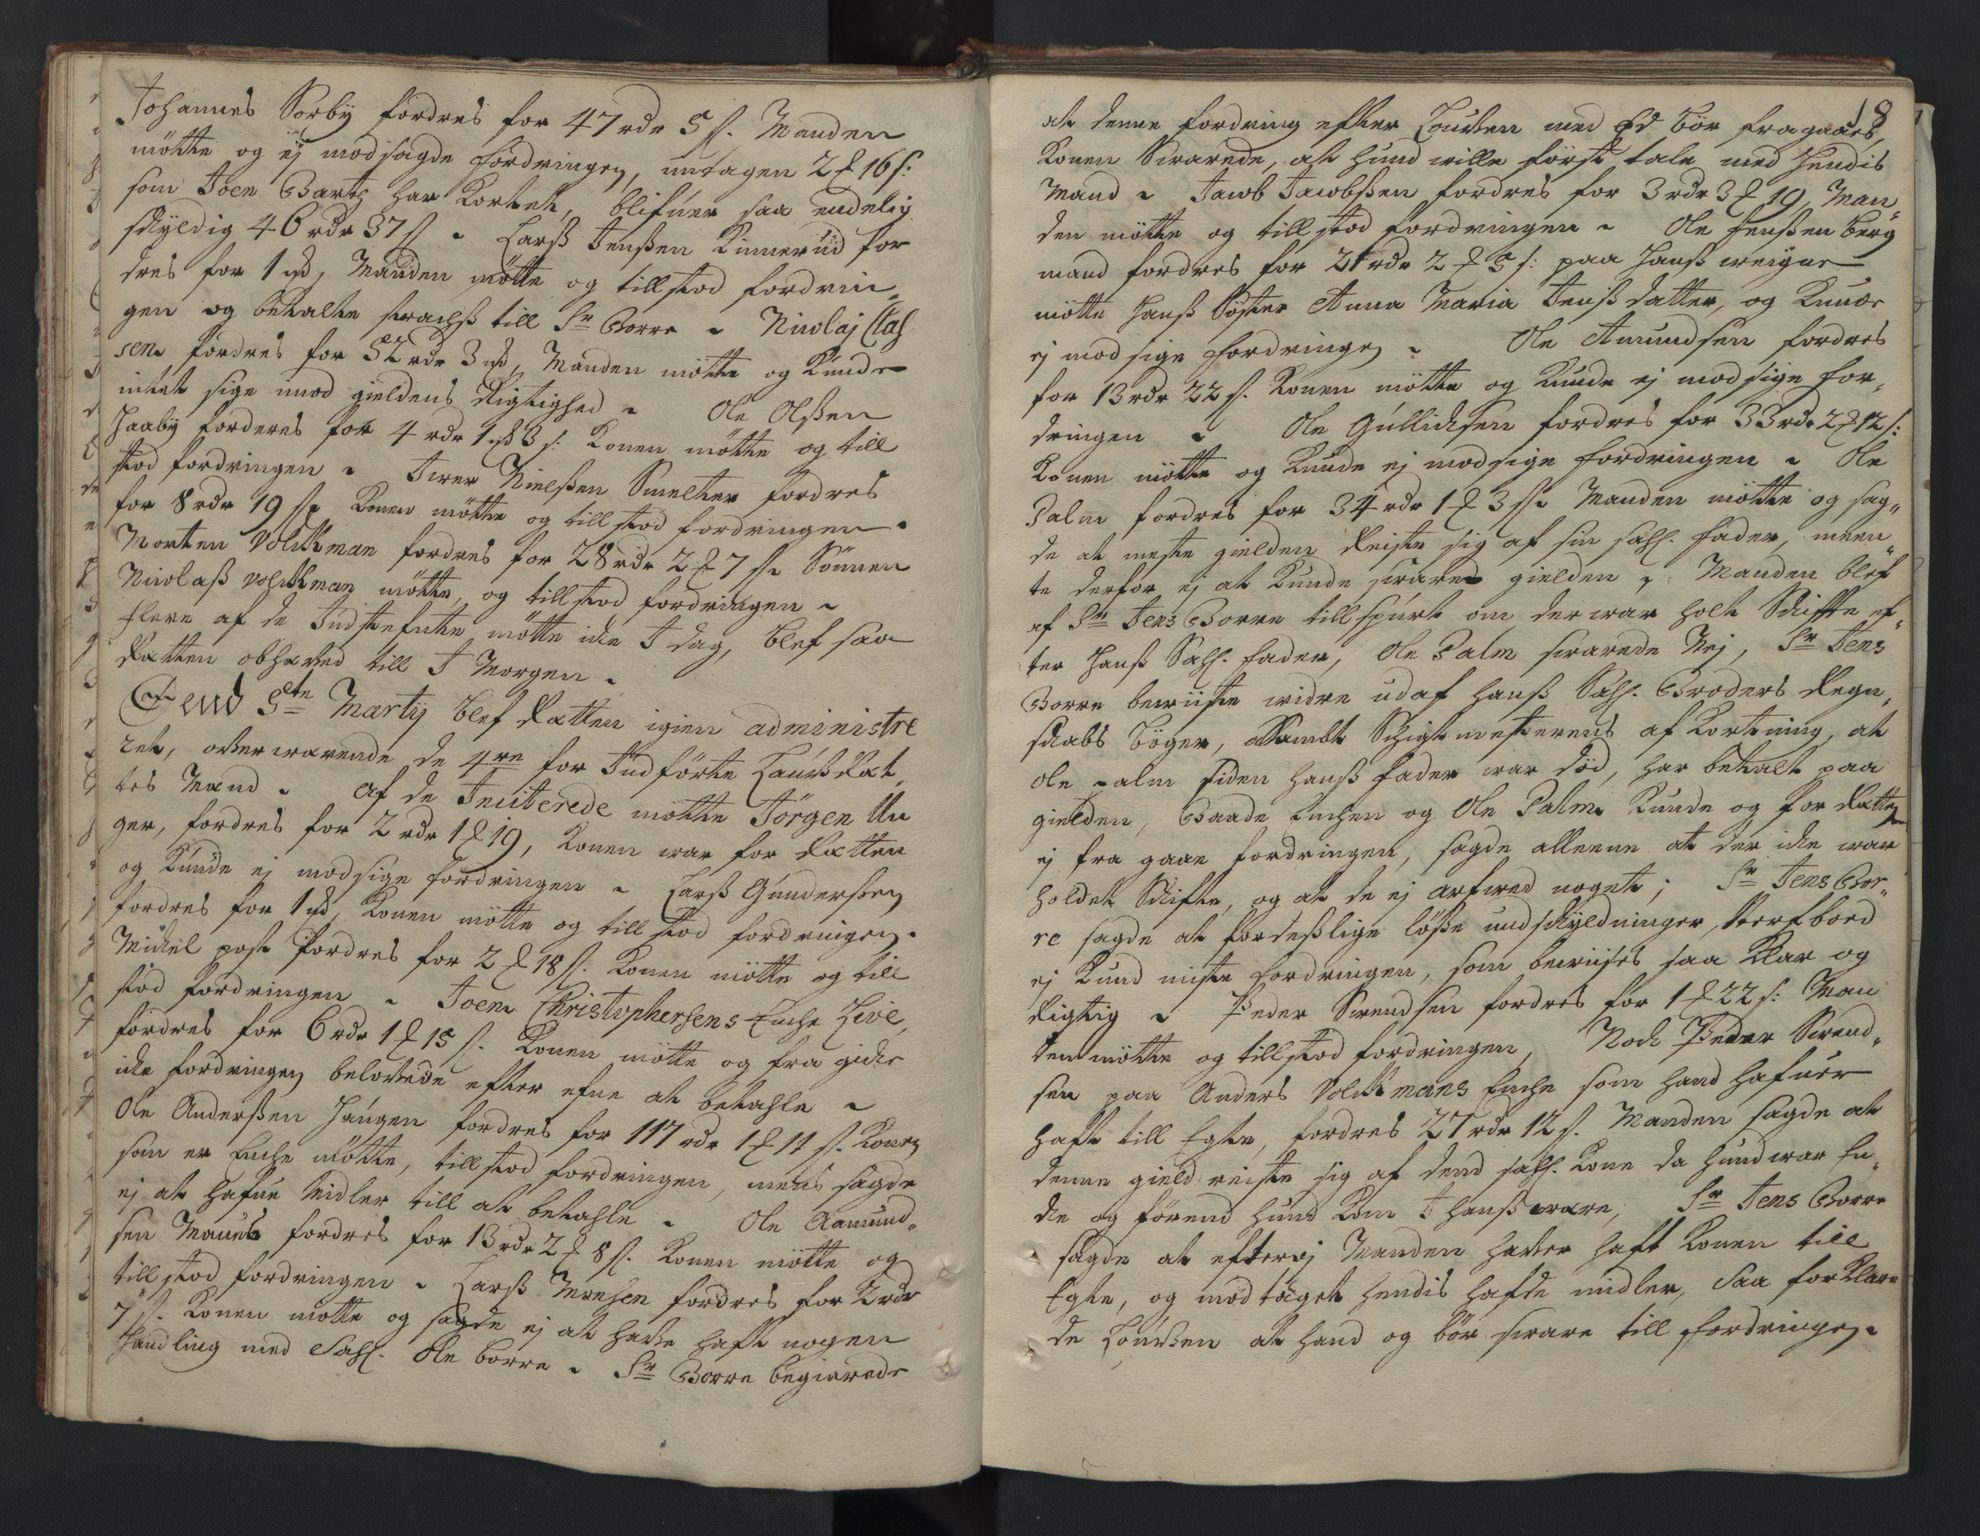 Johannes Sørby fordres for 47 rdr 5 s. Manden
møtte og ej modsagde fordringen, untagen 2 # 16 s:
som Joen Barth har Kortet, blifuer saa endelig
skyldig 46 rdr 37 s Larß Jenßen Kinnerud for
dres for 1 #, Manden møtte og tillstod fordrin„
gen og betalte strachß till Sr Borre Nicolaj Claß
sen fordres for 52 rdr 3 #, Manden møtte og Kunde
intet sige imod gieldens Rigtighed Ole Olßen
Haaby forderes for 4 rdr 1 # 3 s: Konen møtte og till
stod fordringen Iwer Nielßen Smelter fordres
for 8 rdr 19 s Konen møtte og tillstod fordringen
Morten Volckman fordres for 28 rdr 2 # 7 s Sønnen
Nicolaß Volckman møtte, og tillstod fordringen
flere af de Indstefnte møtte icke I dag, blef saa
Ratten ophæved till I Morgen
Dend 5te Martij blef Ratten igien administre
ret, ofverwærende de 4re for Indførte Laugß Ræt
tes Mænd af de Inciterede møtte Jørgen Un
ger, fordres for 2 rdr 1 # 19, Konen war for Rætten
og Kunde ej modsige fordringen Larß Gunderßen
fordres for 1 #, Konen møtte og tillstod fordringen
Michel post fordres for 2 # 18 s. Konen møtte og till
stod fordringen Joen Christophersens Enche Live,
fordres for 6 rdr 1 # 15 s. Konen møtte og fra gick
icke fordringen belofvede efter efne at betahle
Ole Anderßen Haugen fordres for 117 rdr 1 # 11 s. Konen
som er Enche møtte, tillstod fordringen, mens sagde
ej at hafue Midler till at betahle Ole Aamund„
sen Maurer fordres for 13 rdr 2 # 8 s. Konen møtte og
tillstod fordringen Larß Monsen fordres for 2 rdr
7 s. Konen møtte og sagde ej at hafve haft nogen
Handling med Sahl. Ole borre Sr Borre begierede
18
at denne fordring efter Louven med Ed bør fragaaes,
Konen Svarede, at hund wille først tale med Hendis
Mand Jacob Jacobßen fordres for 3 rdr 3 # 19, Man„
den møtte og tillstod fordringen Ole Jenßen berg
mand fordres for 21 rdr 2 # 5 s: paa Hanß weigne
møtte Hanß Søster Anna Maria Jenß datter, og Kunde
ej modsige fordringen Ole Amundsen fordres
for 13 rdr 22 s. Konen møtte og Kunde ej modsige for„
dringen Ole Gullichsen fordres for 33 rdr 2 # 12 s:
Konen møtte og Kunde ej modsige fordringen Ole
Palm fordres for 34 rdr 1 # 3 s Manden møtte og sag„
de at meste gielden Reiste sig af sin sahl. fader, meen
te derfor ej at Kunde svare gielden Manden blef
af Sr Jens Borre tillspurt om der war holt Skiffte ef„
ter Hanß Sahl. fader, Ole Palm svarede Nej, Sr Jens
Borre bewiiste widre udaf hanß Sahl. Broders Regn„
skabs bøger, Sambt Schigtmesterens af Kortning, at
Ole Palm siden hanß fader war død, har betalt paa
gielden, Baade Enchen og Ole Palm Kunde og for Rætten
ej fra gaae fordringen, sagde alleene at der icke war
holdet Skifte, og at de ej arfwed noget; Sr Jens Bor„
re sagde at fordeßlige løße undskyldninger, Sterfboed
ej Kund miste fordringen, som bewiises saa klar og
Rigtig Peder Svendsen fordres for 1 # 22 s: Man
den møtte og tillstod fordringen, Noch Peder Svend„
sen paa Anders Volckmans Enche som hand hafuer
haft till Egte, fordres 27 rdr 12 s. Manden sagde at
denne gield reiste sig af dend sahl. Kone da hund war En„
cke og førend hund kom I hanß ware, Sr Jens Borre
sagde at efterej Manden hafver haft Konen till
Egte, og modtaget hendis hafde midler, Saa forklare
de Louven at hand og bør svare till fordringen